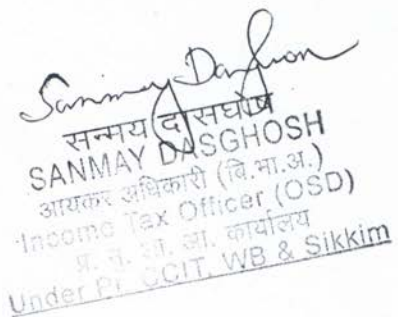 Sanmay Dasghosh
सन्मय दासघोष
SANMAY DASGHOSH
आयकर अधिकारी (वि.भा.अ.)
Income Tax Officer (OSD)
कार्यालय
Under Pr. CCIT, WB & Sikkim